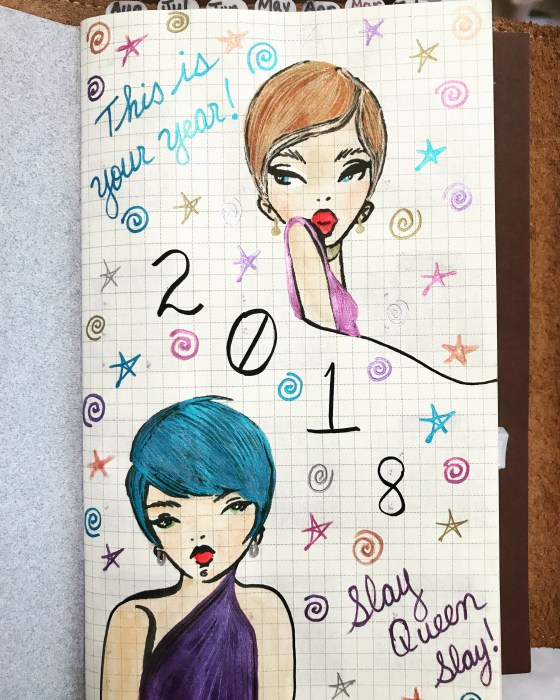 Aug Jul Jun May Apr Mar
This is
your year!
2018
Slay
Queen
Slay!